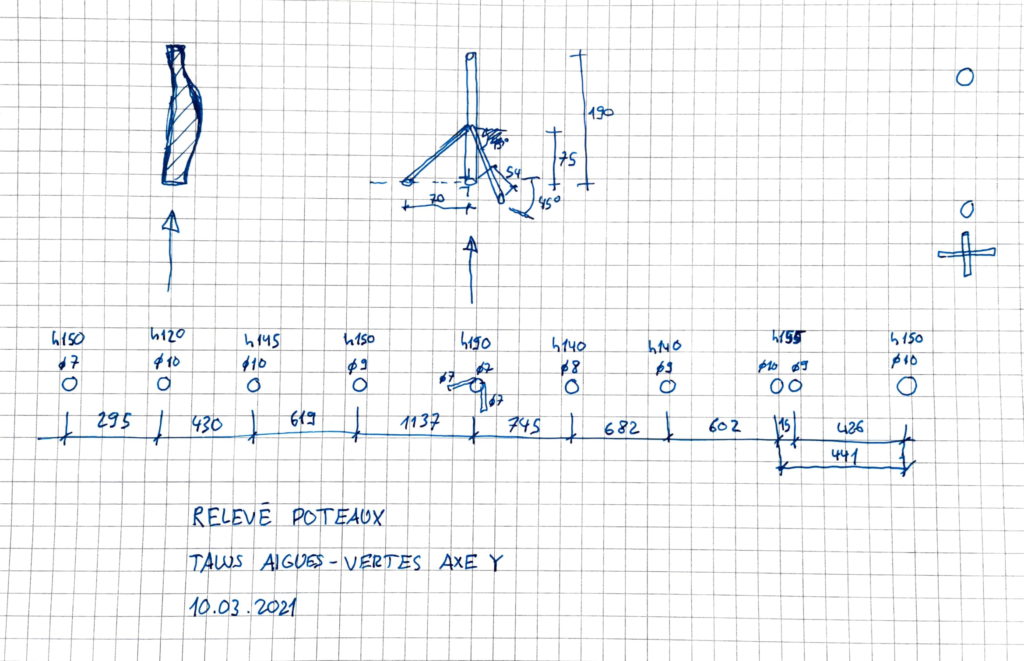 190
75
45°
54
70
45°
h150 h120 h145 h150 h190 h140 h140 h155 h150
ø7 ø10 ø10 ø9 ø7 ø8 ø9 ø10 ø9 ø10
ø7
ø7
295 430 619 1137 745 682 602 15 426
441
RELEVÉ POTEAUX
TALUS AIGUES-VERTES AXE Y
10.03.2021